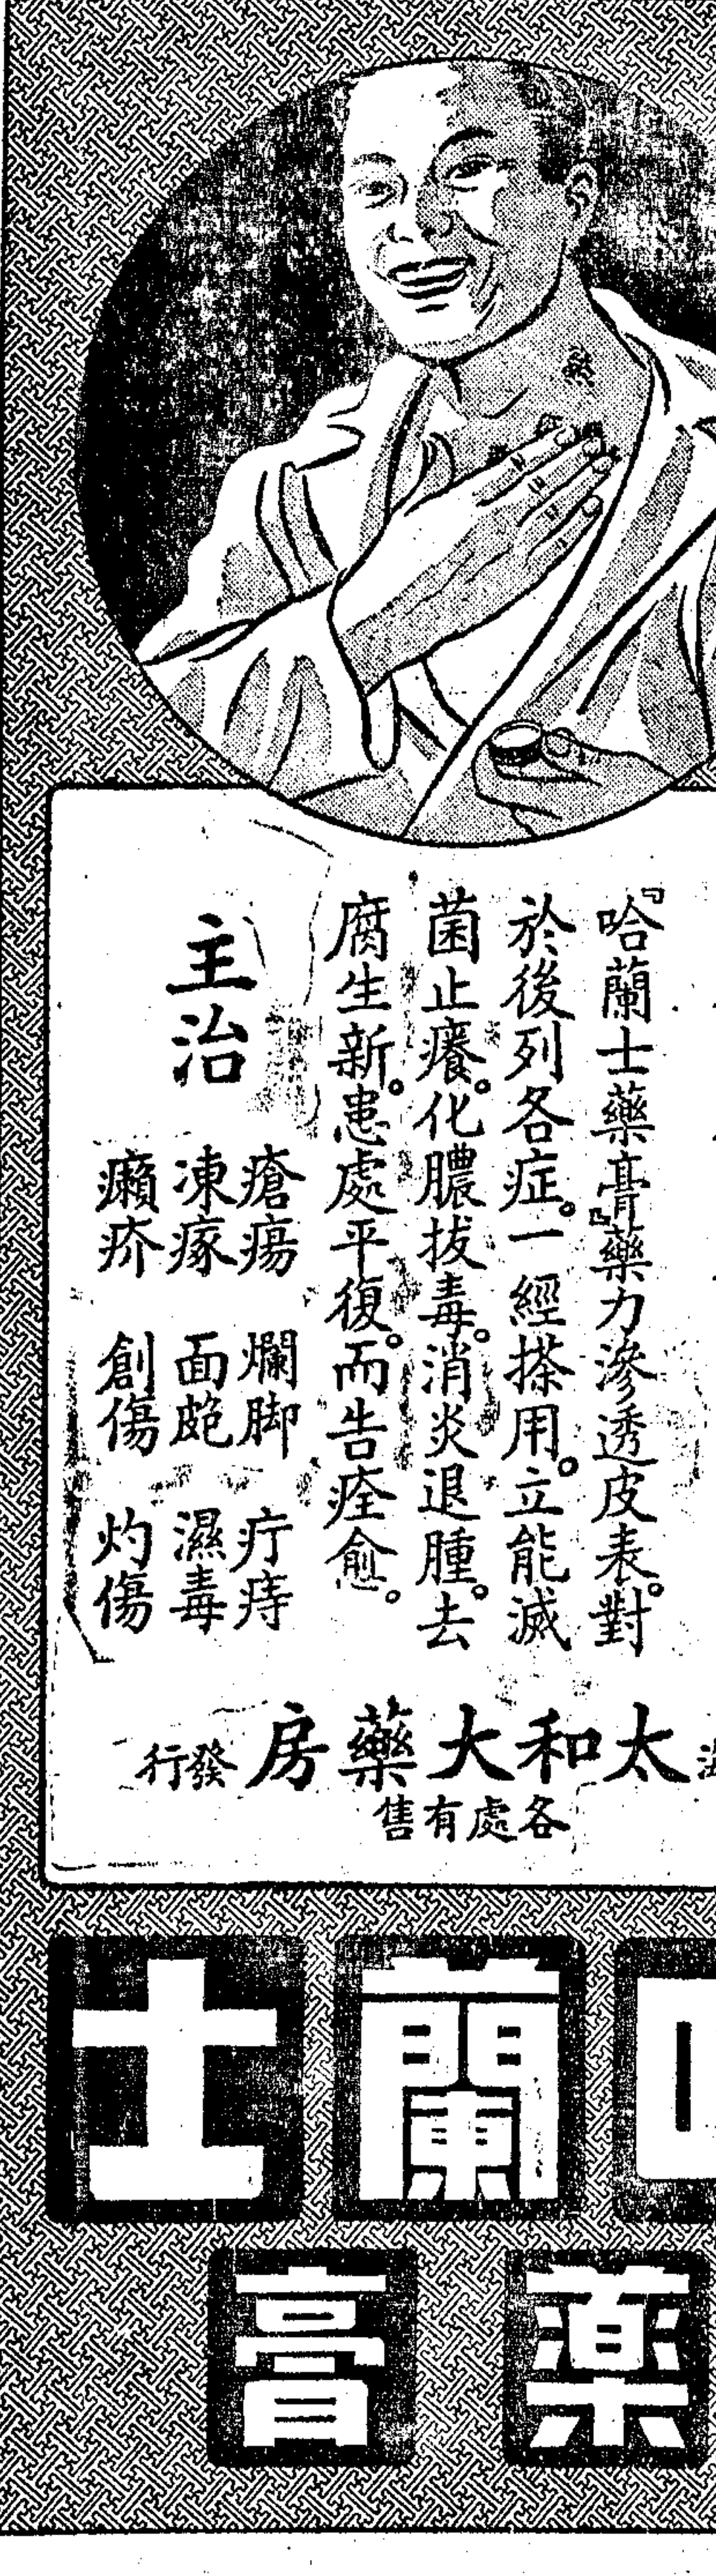 『哈蘭士藥膏』藥力滲透皮表。對
於後列各症。一經搽用。立能滅
菌止癢。化膿拔毒。消炎退腫。去
腐生新。患處平復。而告痊愈。
主治
瘡瘍 爛脚 疔痔
凍瘃 面皰 濕毒
癩疥 創傷 灼傷
太和大藥房發行
各處有售
蘭士
藥膏